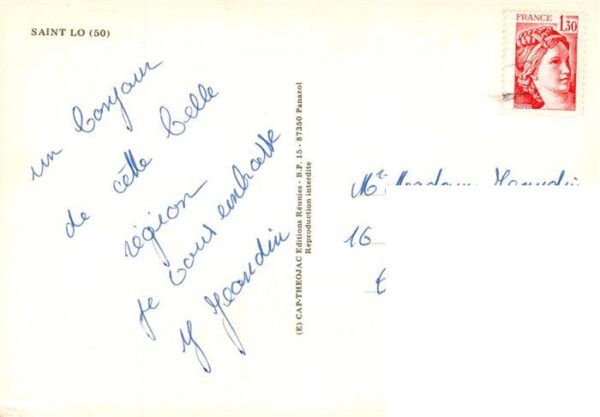 SAINT LO (50)
un bonjour
de cette belle
région
je vous embrasse
FRANCE
1,30
(E) CAP-THEOJAC Editions Réunies - B.P. 15 - 87350 Panazol
Reproduction interdite
16